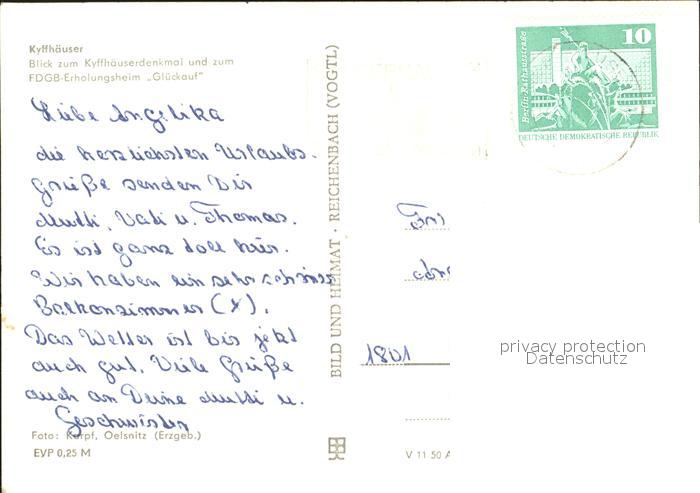 Kyffhäuser
Blick zum Kyffhäuserdenkmal und zum
FDGB-Erholungsheim „Glückauf"
Liebe Angelika
die herzlichsten Urlaubs-
grüße senden Dir
Mutti, Vati u. Thomas.
Es ist ganz toll hier.
Wir haben ein sehr schönes
Balkonzimmer (x).
Das Wetter ist bis jetzt
auch gut. Viele Grüße
auch an Deine Mutti u.
Geschwister
Foto: Karpf, Oelsnitz (Erzgeb.)
EVP 0,25 M
BILD UND HEIMAT · REICHENBACH (VOGTL)
V 11 50 A
Berlin-Rathausstraße
10
DEUTSCHE DEMOKRATISCHE REPUBLIK
1801
privacy protection
Datenschutz